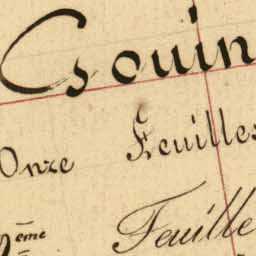 Gouin
Onze Feuilles
Feuille
ème